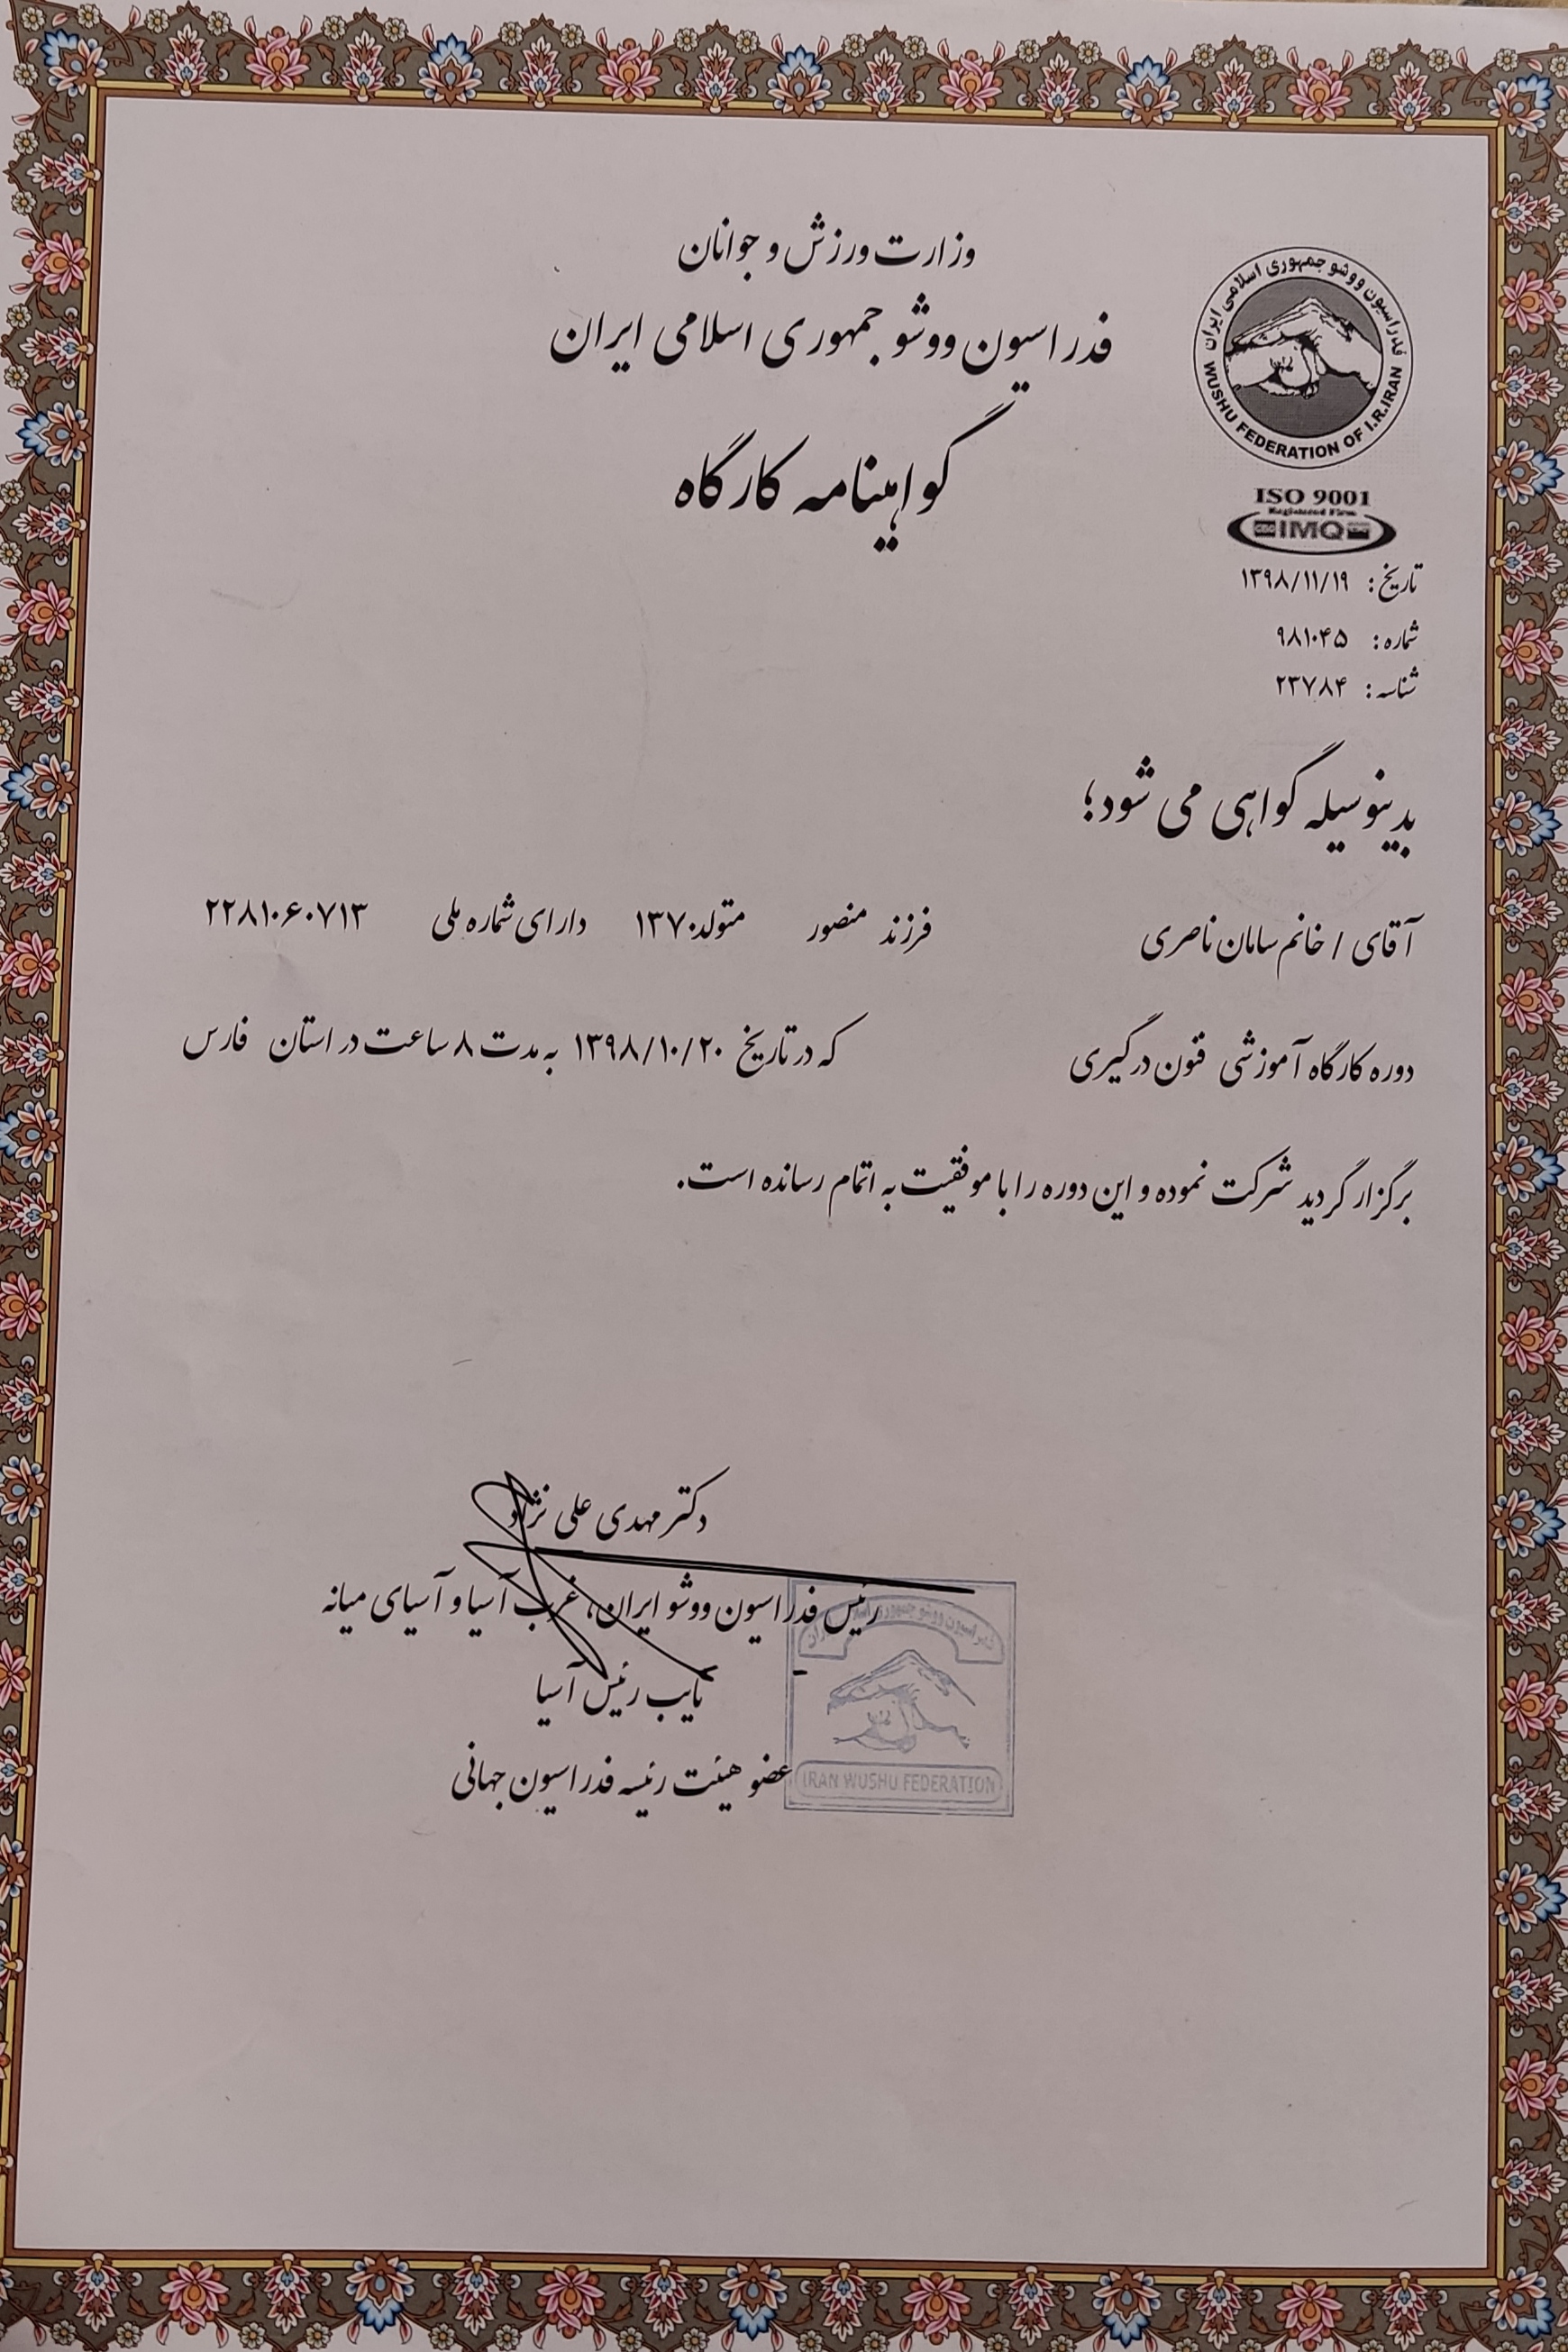 وزارت ورزش و جوانان
فدراسیون ووشو جمهوری اسلامی ایران
گواهینامه کارگاه
فدراسیون ووشو جمهوری اسلامی ایران
WUSHU FEDERATION OF I.R.IRAN
ISO 9001
Registered Firm
IMQ
تاریخ: ۱۳۹۸/۱۱/۱۹
شماره: ۹۸۱۰۴۵
شناسه: ۲۳۷۸۴
بدینوسیله گواهی می شود؛
آقای / خانم سامان ناصری فرزند منصور متولد ۱۳۷۰ دارای شماره ملی ۲۲۸۱۰۶۰۷۱۳
دوره کارگاه آموزشی فنون درگیری که در تاریخ ۱۳۹۸/۱۰/۲۰ به مدت ۸ ساعت در استان فارس
برگزار گردید شرکت نموده و این دوره را با موفقیت به اتمام رسانده است.
دکتر مهدی علی نژاد
رئیس فدراسیون ووشو ایران، غرب آسیا و آسیای میانه
نایب رئیس آسیا
عضو هیئت رئیسه فدراسیون جهانی
IRAN WUSHU FEDERATION